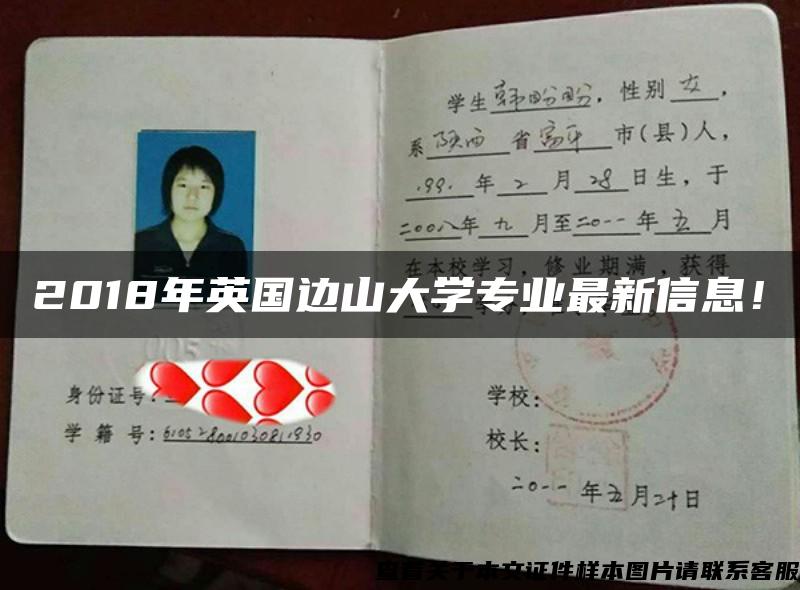 学生韩盼盼，性别女，
系陕西省富平市(县)人，
1991年2月28日生，于
二00八年九月至二0一一年五月
在本校学习，修业期满，获得
2018年英国边山大学专业最新信息！
身份证号：
学籍号：610528001030811930
学校：
校长：
二0一一年五月二十日
查看关于本文证件样本图片请联系客服